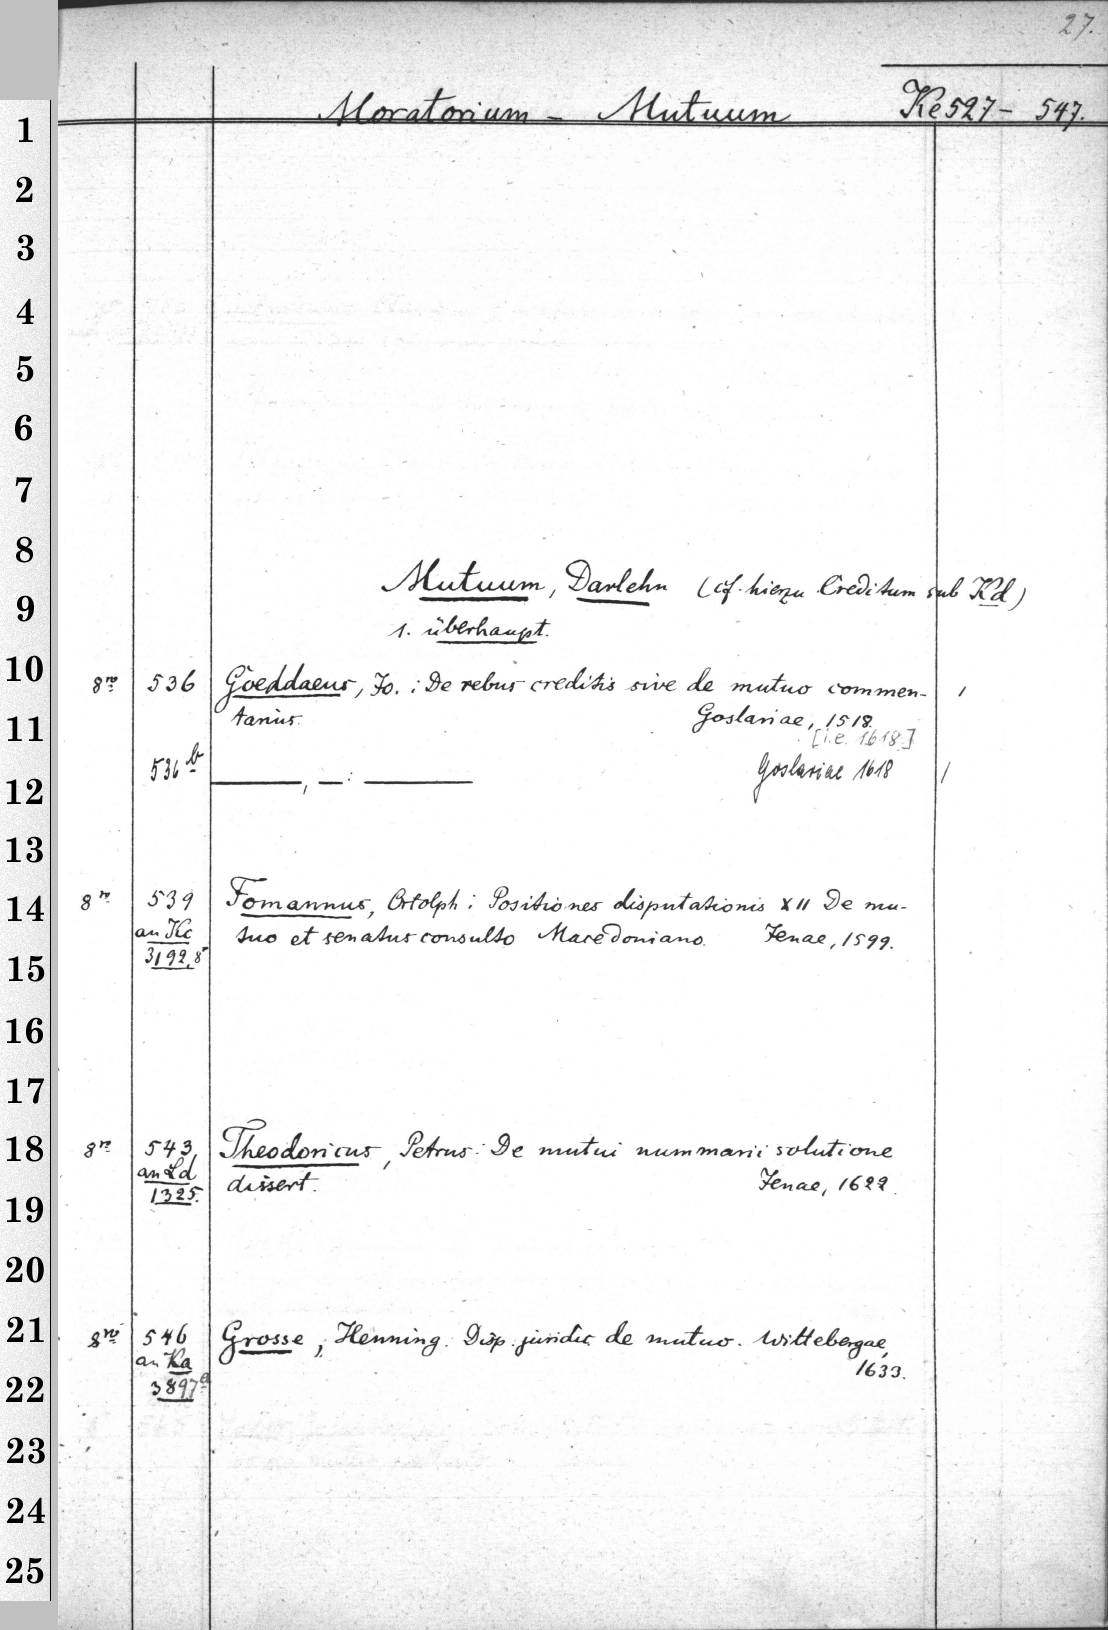 27.
Moratorium – Mutuum Ke 527 – 547.
1
2
3
4
5
6
7
8
Mutuum, Darlehn (cf. hierzu Creditum sub Kd)
9
1. überhaupt.
10
8vo 536 Goeddaeus, Jo. : De rebus creditis sive de mutuo commen- /
tarius. Goslariae, 1518.
11
[i.e. 1618.]
536b ———, — : ——— Goslariae 1618 /
12
13
14
8vo 539 Fomannus, Ortolph : Positiones disputationis XII De mu-
an Kc tuo et senatus consulto Macedoniano. Jenae, 1599.
3192, 8°
15
16
17
18
8vo 543, Theodoricus, Petrus : De mutui nummarii solutione
an Ld dissert. Jenae, 1622.
1325.
19
20
21
8vo 546 Grosse, Henning. Disp. juridic. de mutuo. Wittebergae,
an Ka 1633.
3897a
22
23
24
25